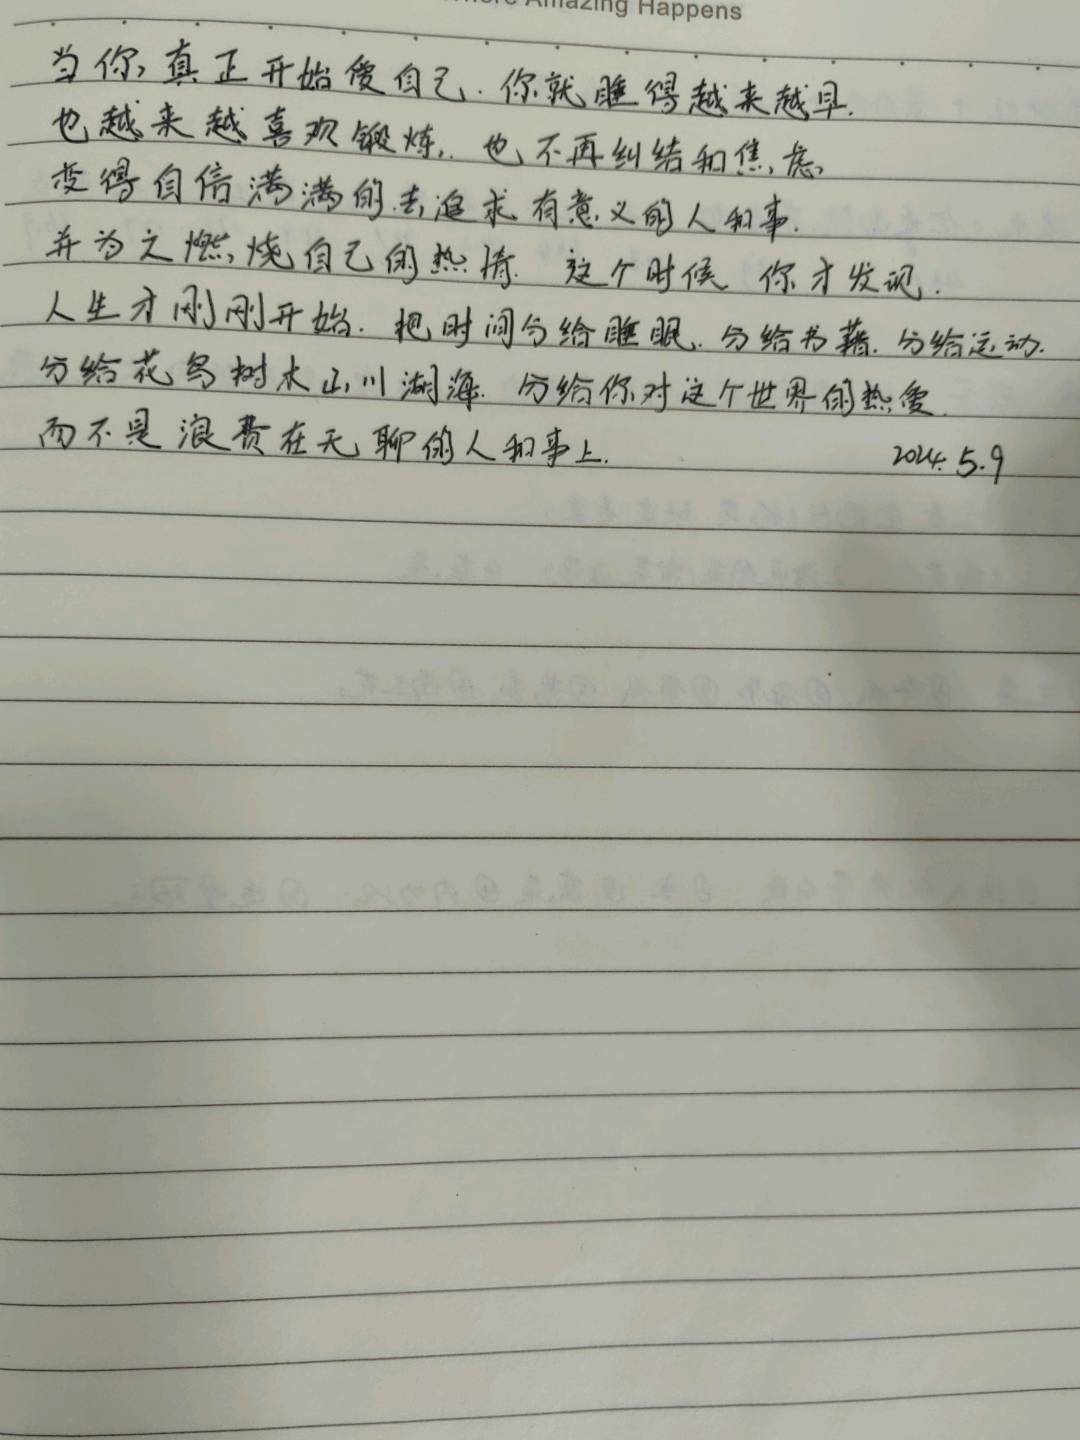 Amazing Happens
当你真正开始爱自己.你就睡得越来越早.
也越来越喜欢锻炼,也不再纠结和焦虑,
变得自信满满的去追求有意义的人和事.
并为之燃烧自己的热情.这个时候 你才发现.
人生才刚刚开始.把时间分给睡眠.分给书籍.分给运动.
分给花鸟树木山川湖海.分给你对这个世界的热爱.
而不是浪费在无聊的人和事上.
2024.5.9